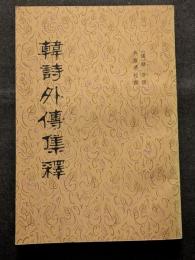 韓詩外傳集釋
［漢］韓嬰撰
許維遹校釋